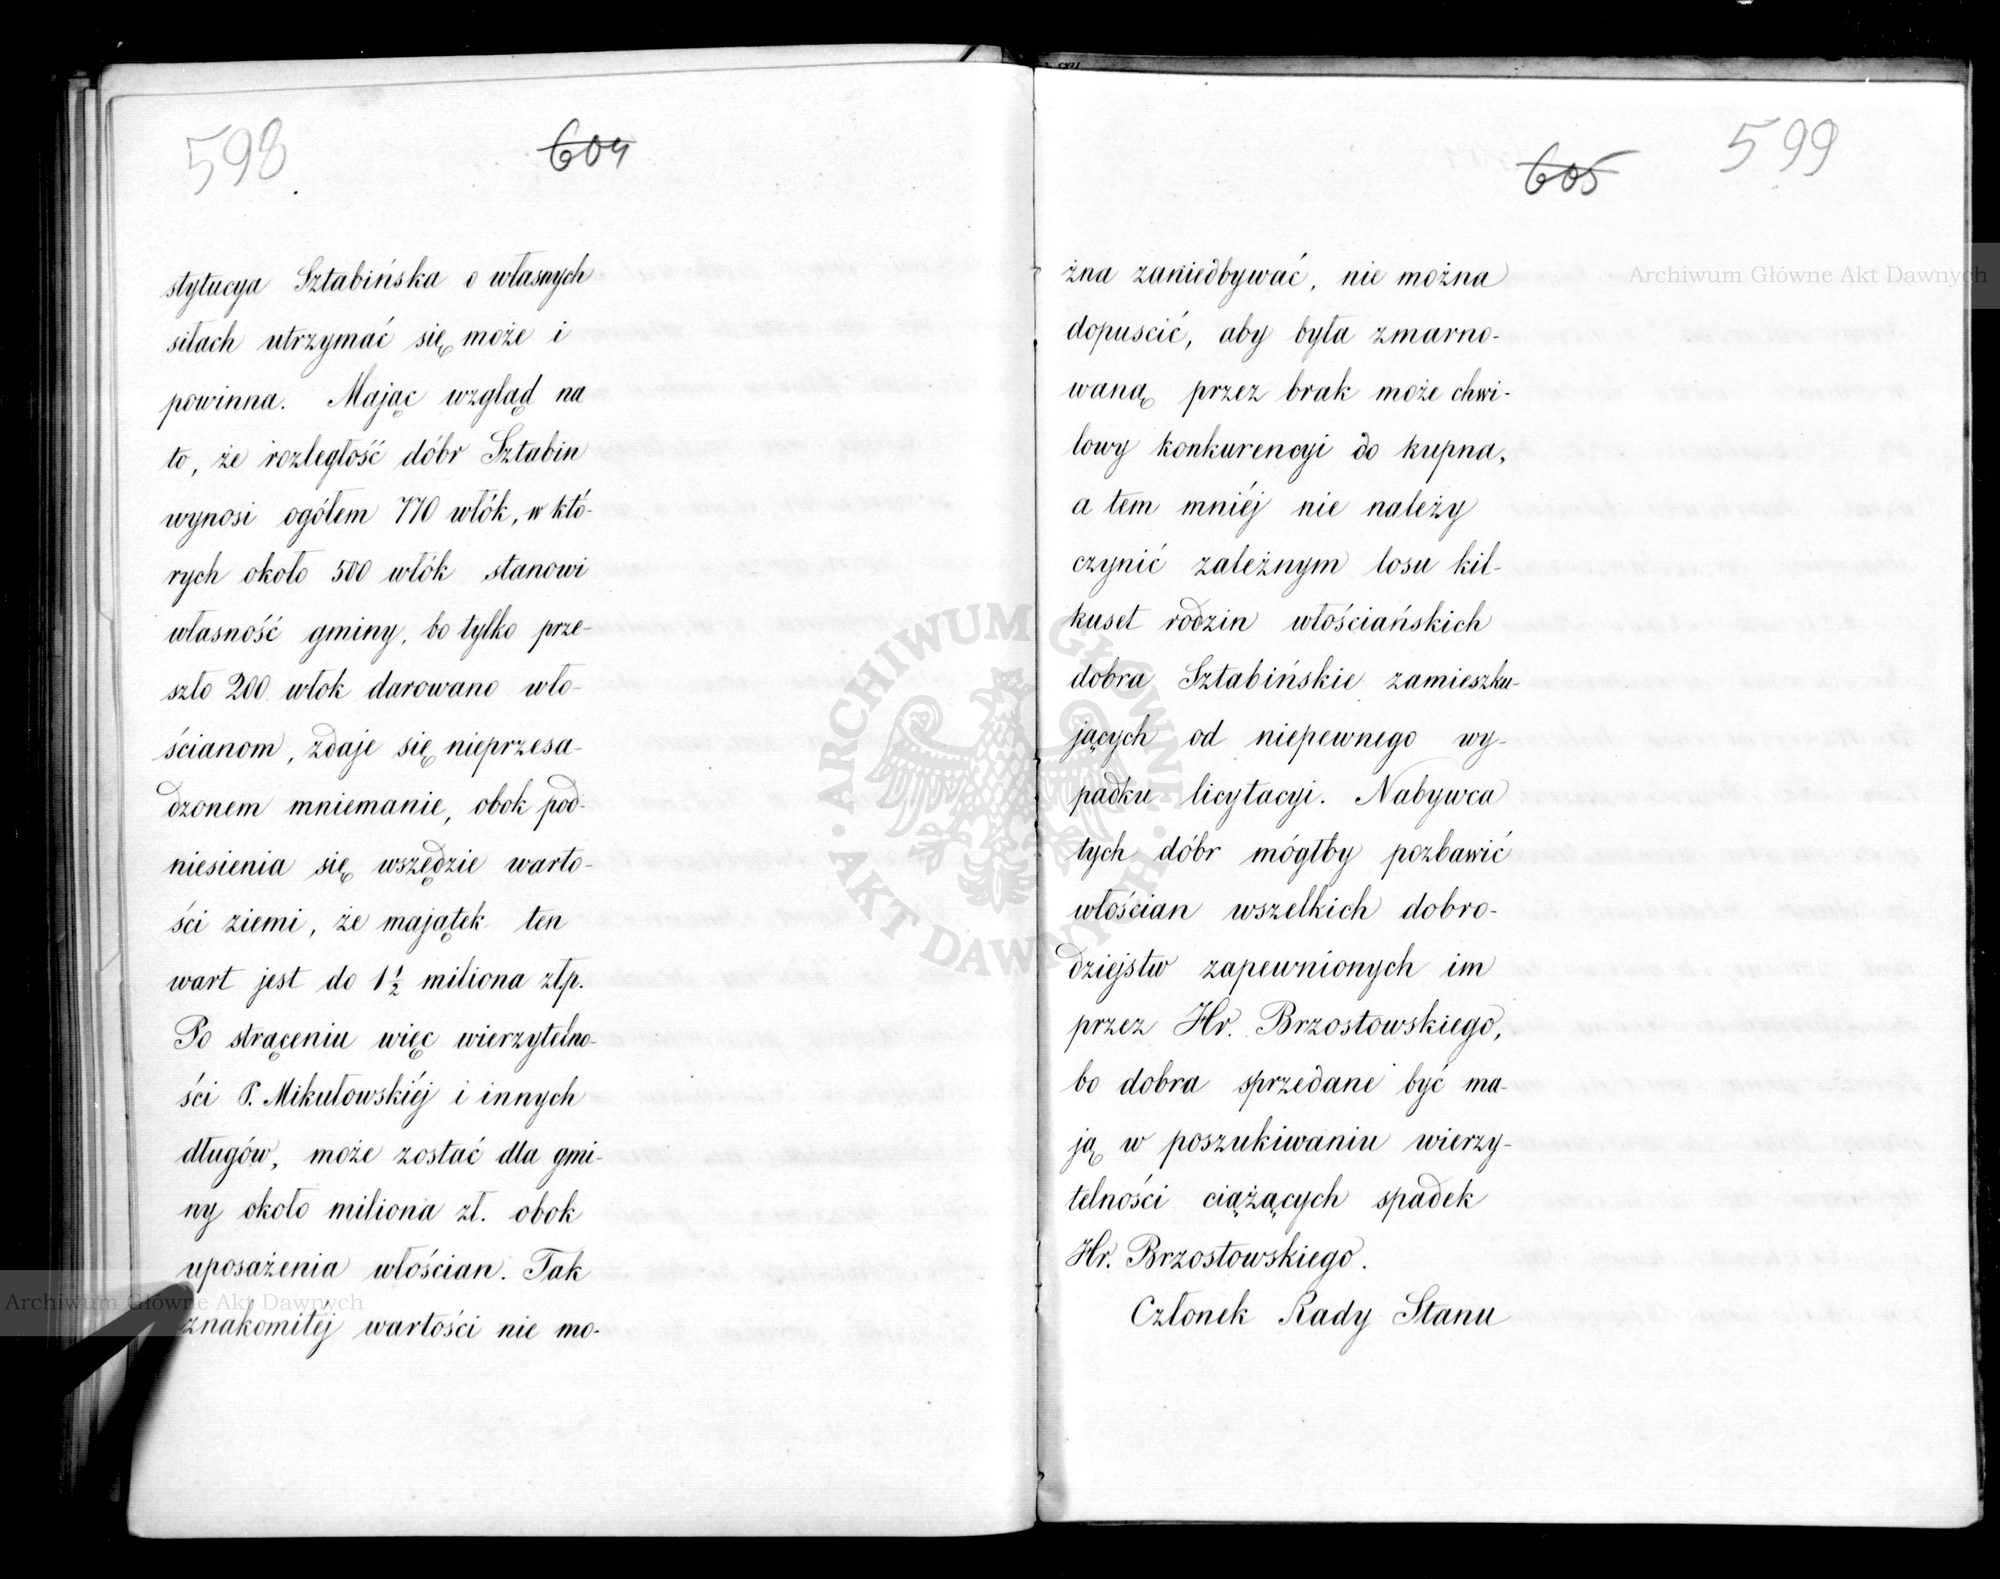 598
604
stytucya Sztabińska o własnych
siłach utrzymać się może i
powinna. Mając wzgląd na
to, że rozległość dóbr Sztabin
wynosi ogółem 770 włók, w któ-
rych około 500 włók stanowi
własność gminy, bo tylko prze-
szło 200 włok darowano wło-
ścianom, zdaje się nieprzesa-
dzonem mniemanie, obok pod-
niesienia się wszędzie warto-
ści ziemi, że majątek ten
wart jest do 1 1/2 miliona złp.
Po strąceniu więc wierzytelno-
ści P. Mikułowskiéj i innych
długów, może zostać dla gmi-
ny około miliona zł. obok
uposażenia włościan. Tak
znakomitéj wartości nie mo-
605
599
żna zaniedbywać, nie można
dopuscić, aby była zmarno-
waną przez brak może chwi-
lowy konkurencyi do kupna,
a tem mniéj nie należy
czynić zależnym losu kil-
kuset rodzin włościańskich
dobra Sztabińskie zamieszku-
jących od niepewnego wy-
padku licytacyi. Nabywca
tych dóbr mógłby pozbawić
włościan wszelkich dobro-
dziejstw zapewnionych im
przez Hr. Brzostowskiego,
bo dobra sprzedane być ma-
ją w poszukiwaniu wierzy-
telności ciążących spadek
Hr. Brzostowskiego.
Członek Rady Stanu
Archiwum Główne Akt Dawnych
Archiwum Główne Akt Dawnych
ARCHIWUM GŁÓWNE
AKT DAWNYCH